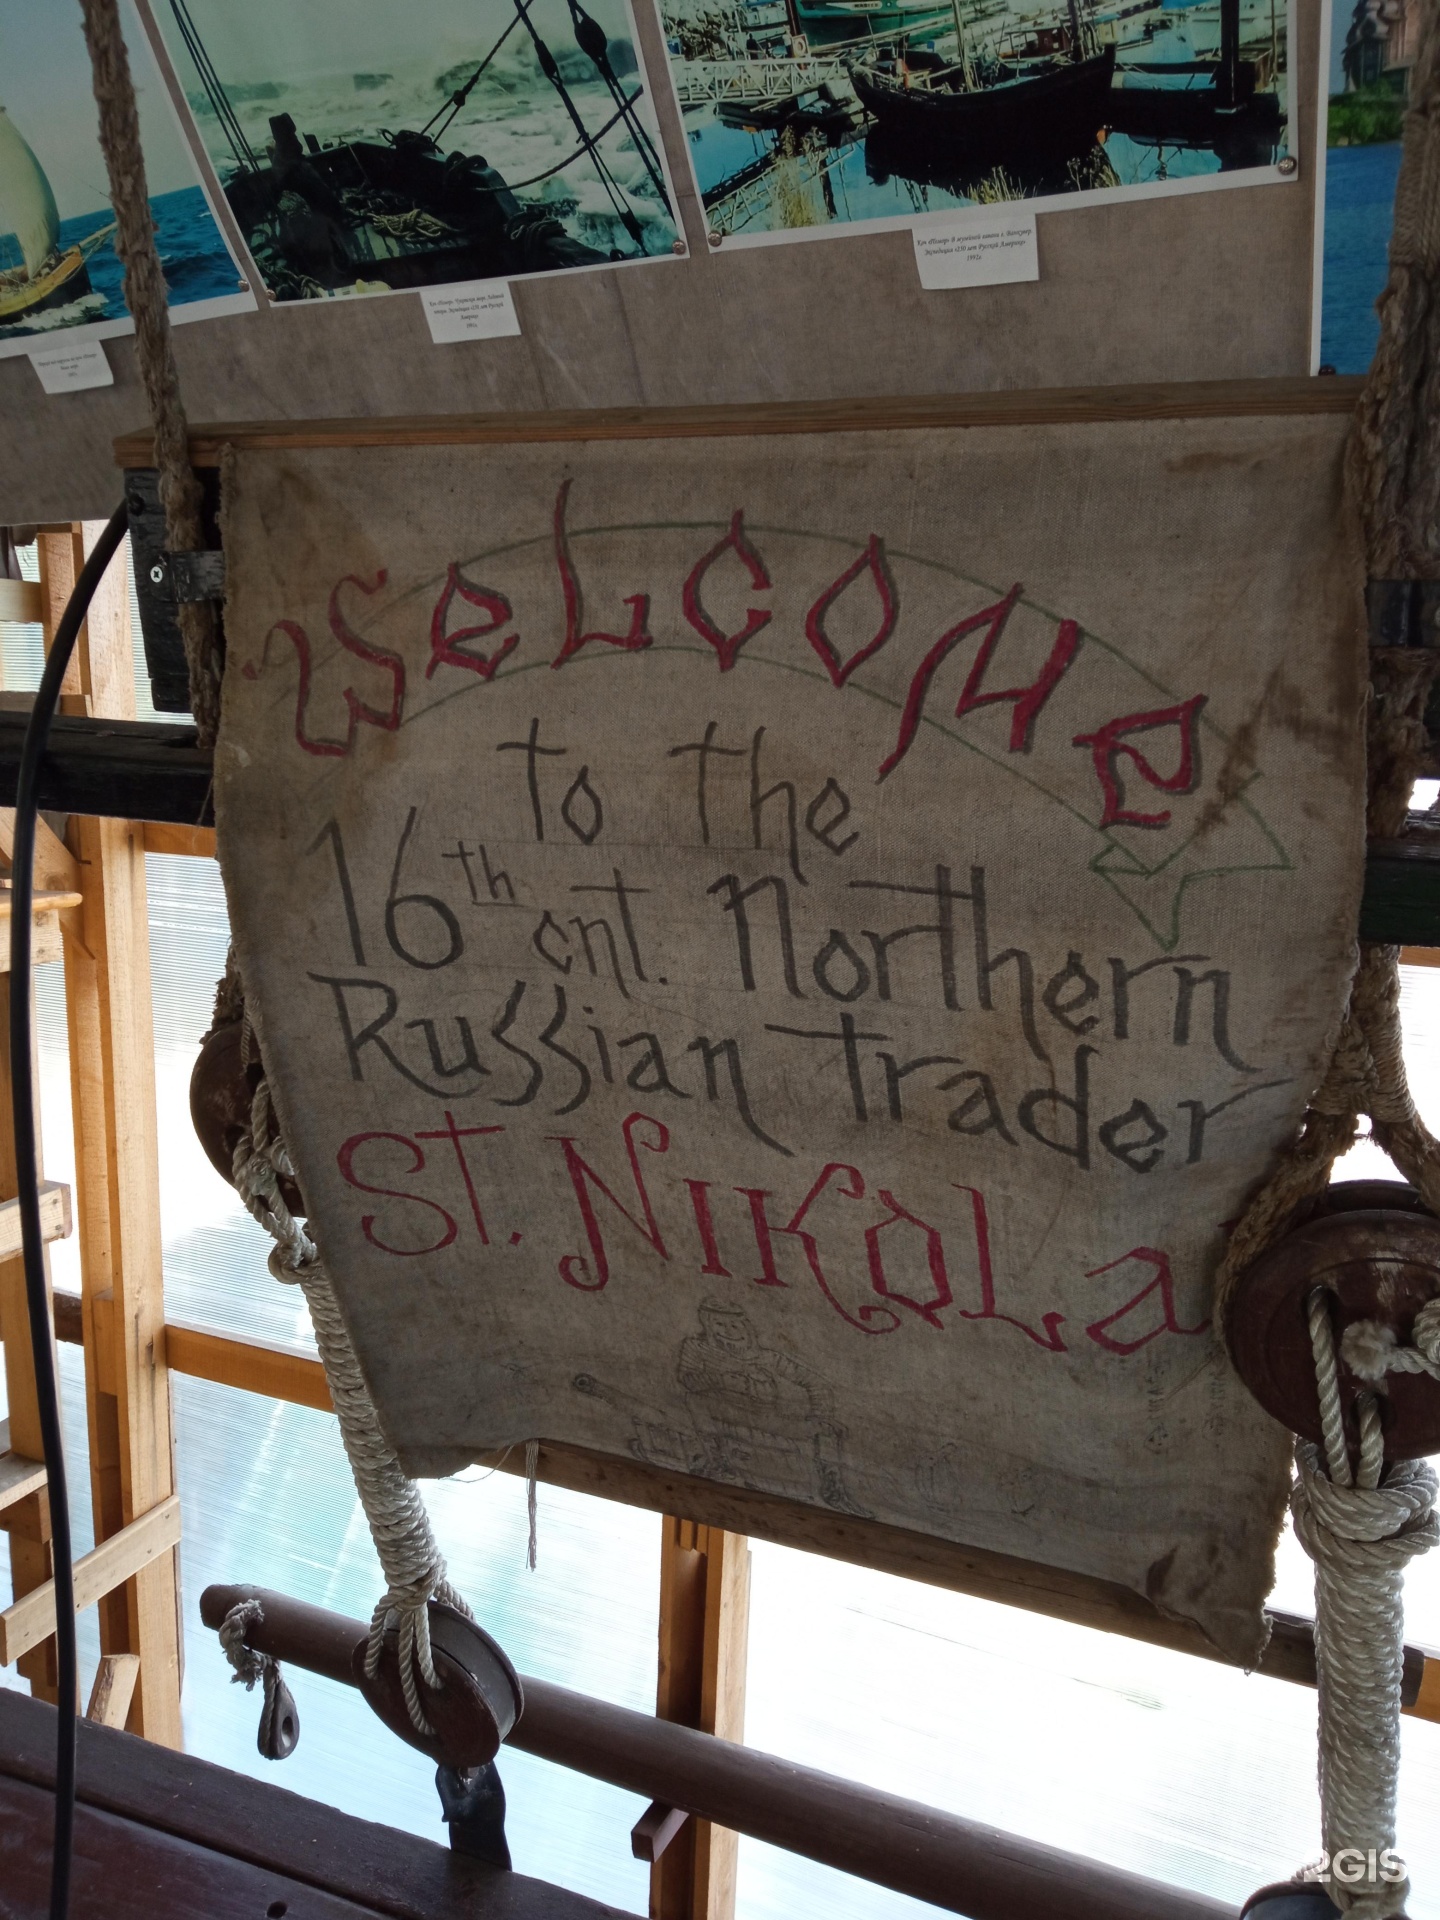 Коч «Помор» Чукотское море. Ледовый
Экспедиция «250 лет Русской
Америке»
1991г.
Коч «Помор» В музейной гавани г. Ванкувер
Экспедиция «250 лет Русской Америке»
1992г
WeLCOMe
to the
16th cnt. Northern
Russian trader
ST. NIKOLa
2GIS